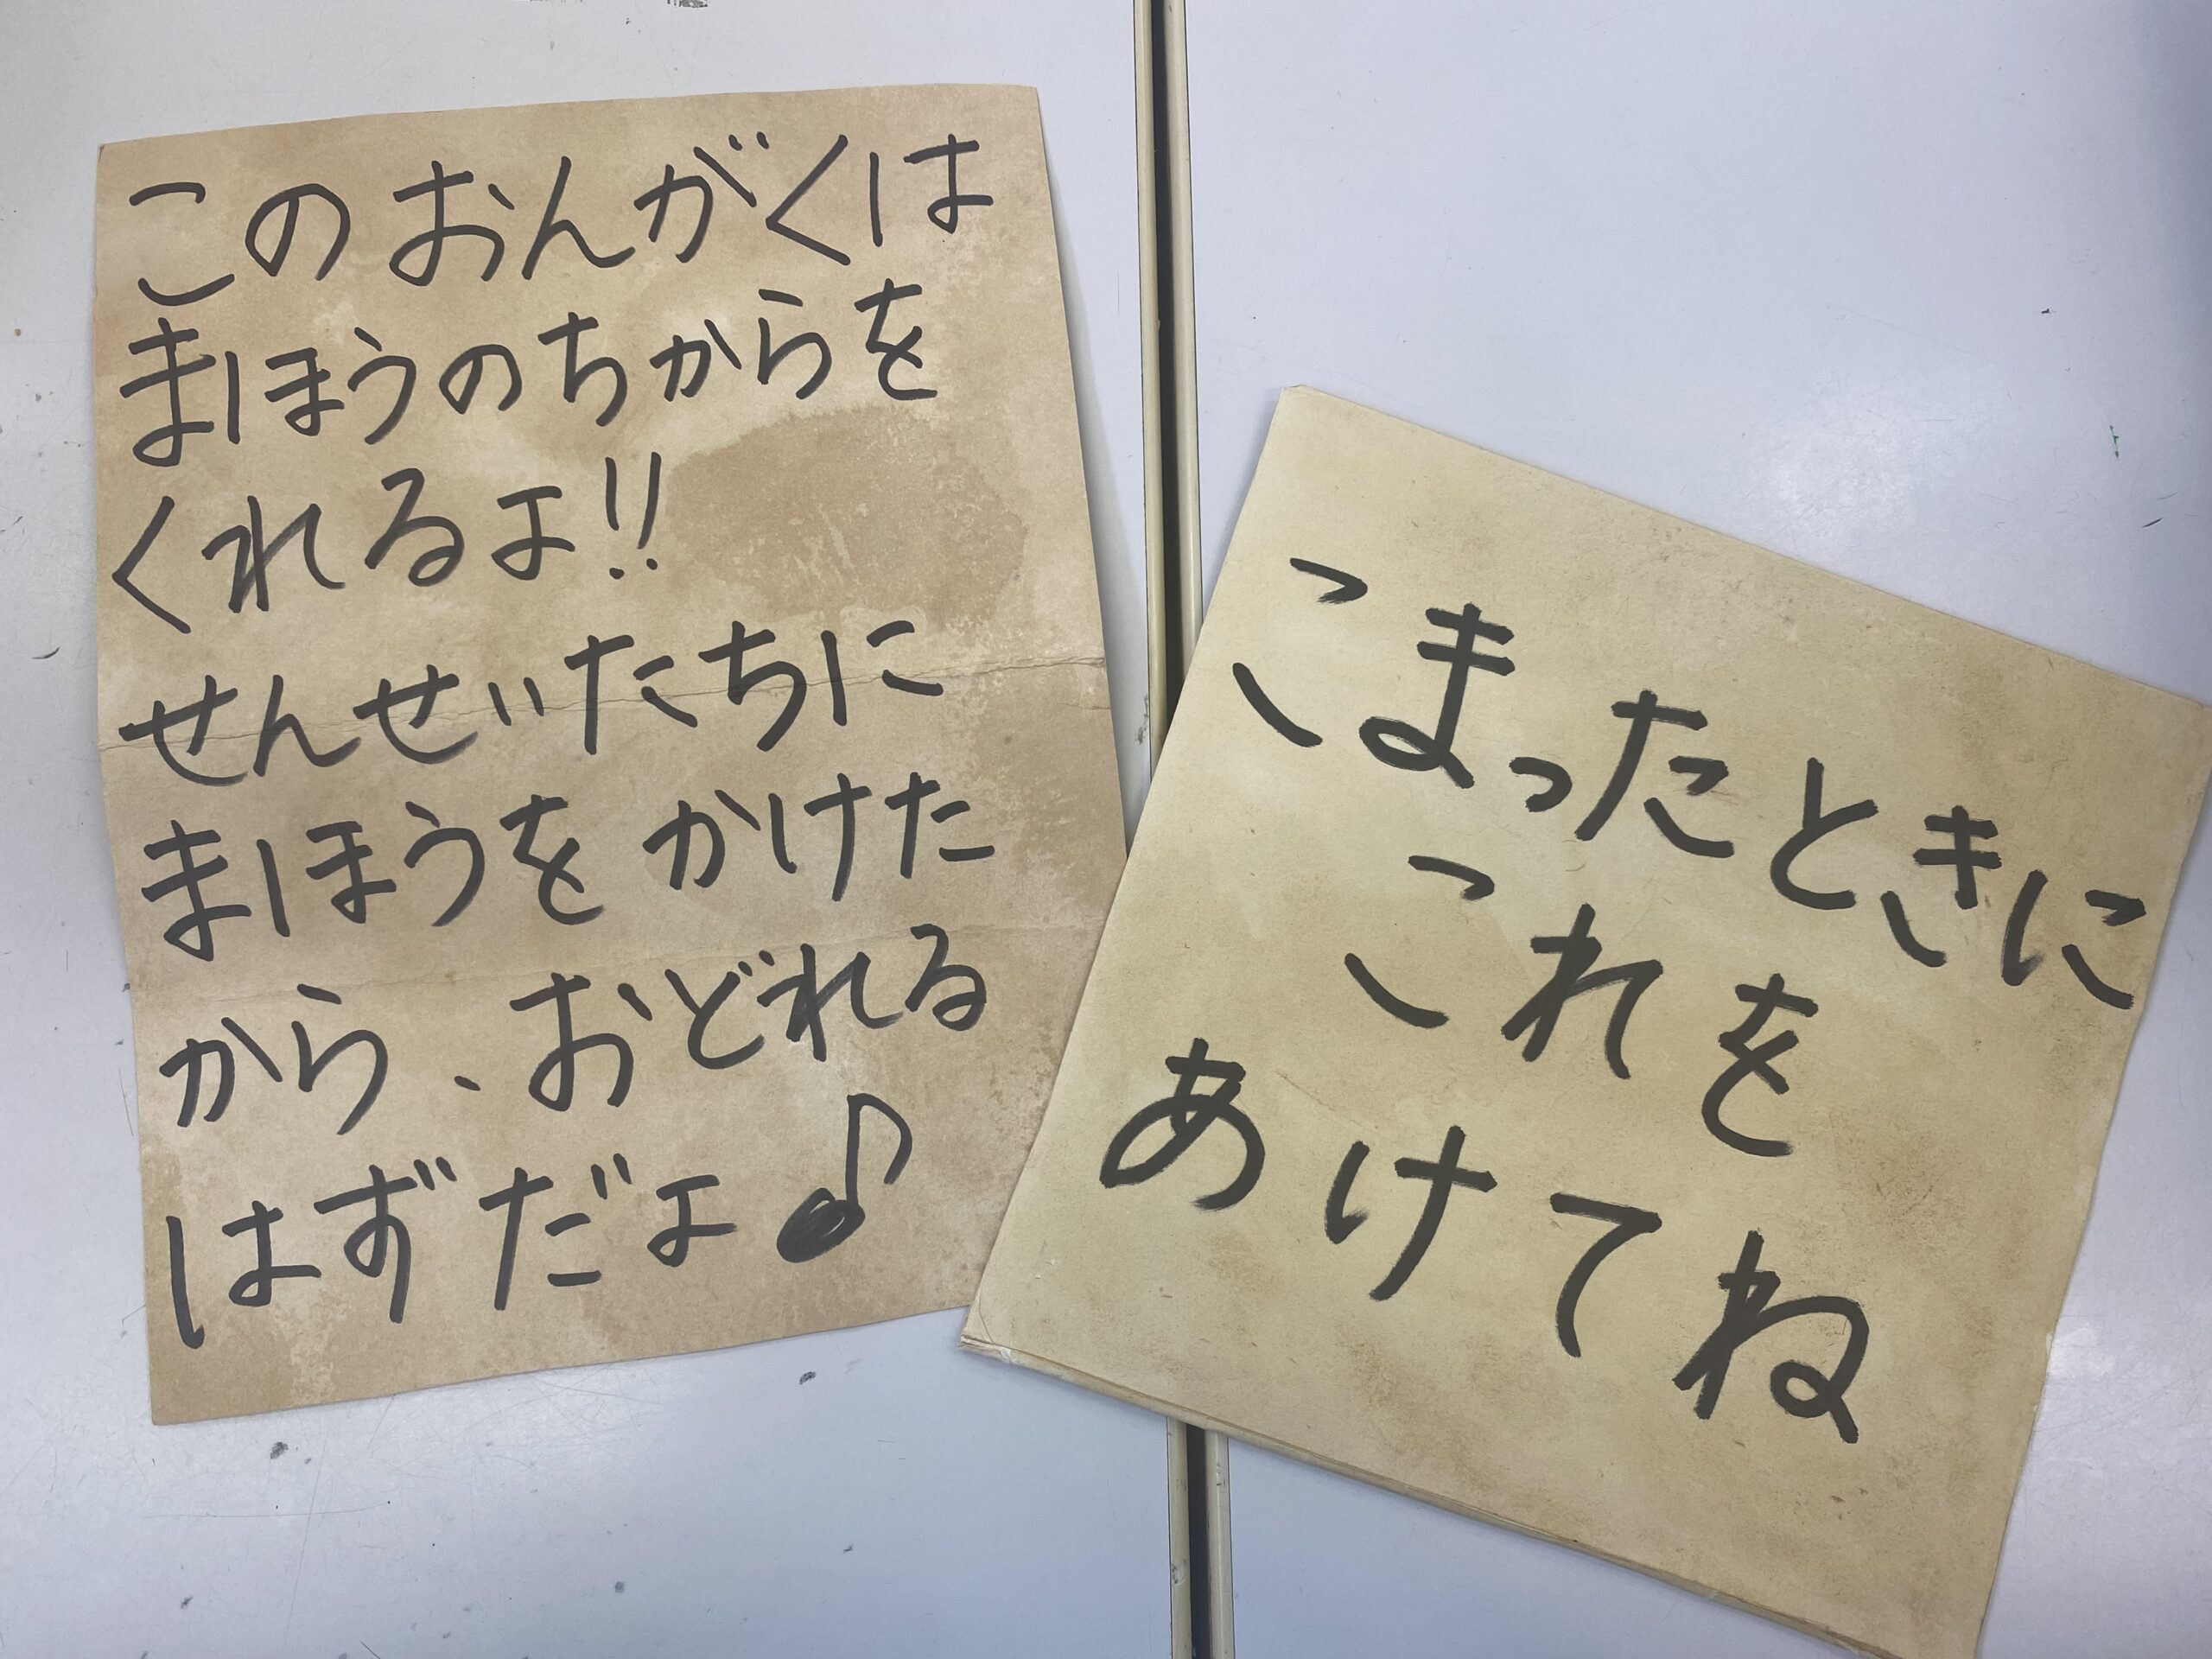 このおんがくは
まほうのちからを
くれるよ!!
せんせいたちに
まほうをかけた
から、おどれる
はずだよ♪
こまったときに
これを
あけてね